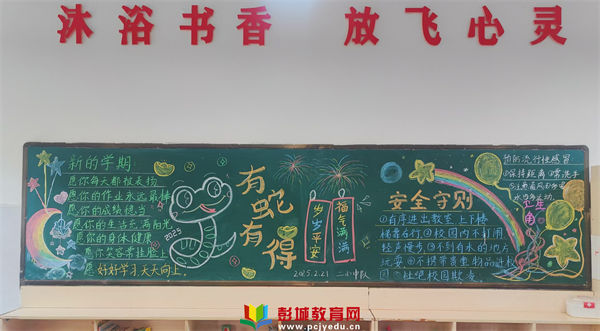 沐浴书香 放飞心灵
新的学期
愿你每天都被表扬
愿你的作业永远最棒
愿你的成绩稳当
愿你的生活充满阳光
愿你的身体健康
愿你笑容常挂脸上
愿好好学习天天向上
2025
有蛇有得
岁岁平安
福气满满
2025.2.21 二小中队
安全守则
①有序进出教室 上下楼
梯靠右行②校园内不打闹
轻声慢步③不到有水的地方
玩耍④不携带贵重物品进校
园⑤杜绝校园欺凌
预防流行性感冒
①保持距离②常洗手
彭城教育网
www.pcjyedu.cn